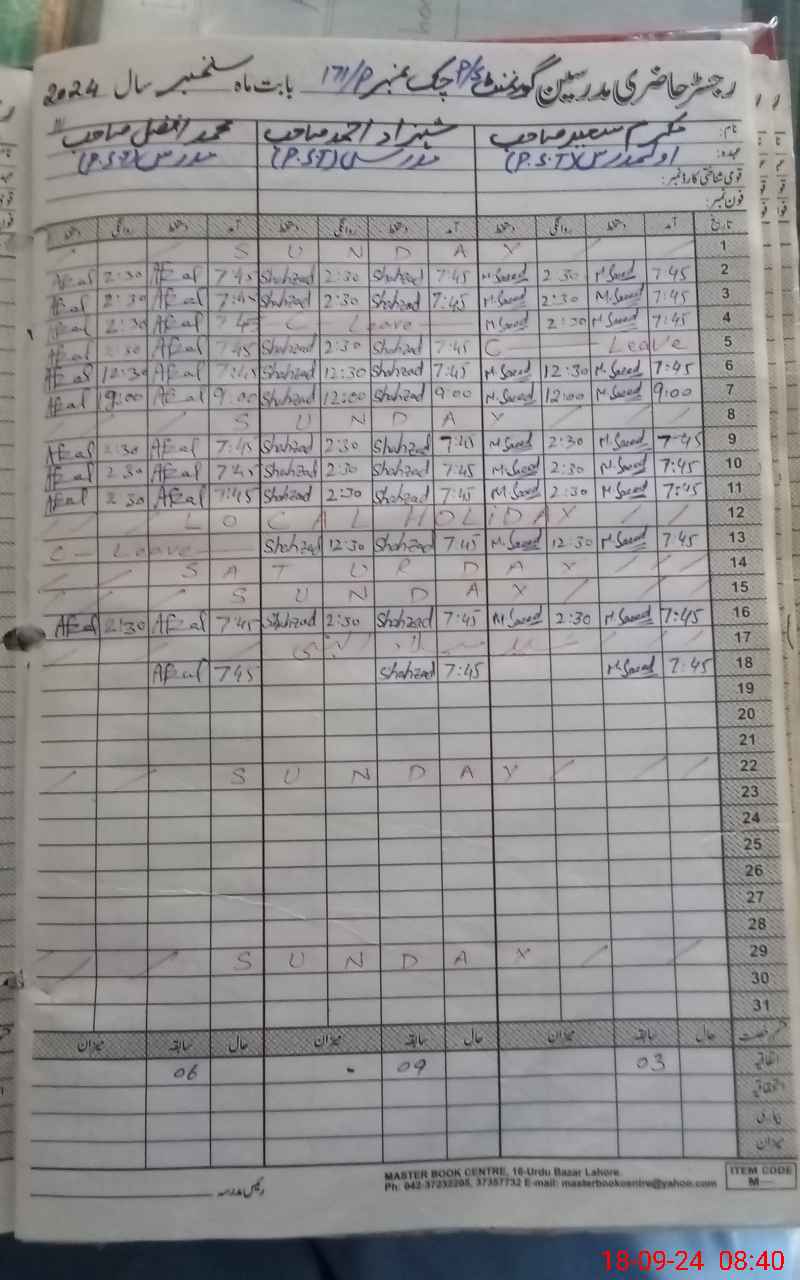 رجسٹر حاضری مدرسین گورنمنٹ P/S چک نمبر 171/P بابت ماہ ستمبر سال 2024
نام: مکرم سعید صاحب شہزاد احمد صاحب محمد افضل صاحب
عہدہ: اول مدرس (P.S.T) مدرس (P.S.T) مدرس (P.S.T)
قومی شناختی کارڈ نمبر:
فون نمبر:
تاریخ آمد دستخط روانگی دستخط آمد دستخط روانگی دستخط آمد دستخط روانگی دستخط
S U N D A Y 1
Afzal 2:30 Afzal 7:45 Shahzad 2:30 Shahzad 7:45 M.Saeed 2:30 M.Saeed 7:45 2
Afzal 2:30 Afzal 7:45 Shahzad 2:30 Shahzad 7:45 M.Saeed 2:30 M.Saeed 7:45 3
Afzal 2:30 Afzal 7:45 C - Leave M.Saeed 2:30 M.Saeed 7:45 4
Afzal 2:30 Afzal 7:45 Shahzad 2:30 Shahzad 7:45 C - Leave 5
Afzal 12:30 Afzal 7:45 Shahzad 12:30 Shahzad 7:45 M.Saeed 12:30 M.Saeed 7:45 6
Afzal 9:00 Afzal 9:00 Shahzad 12:00 Shahzad 9:00 M.Saeed 12:00 M.Saeed 9:00 7
S U N D A Y 8
Afzal 2:30 Afzal 7:45 Shahzad 2:30 Shahzad 7:45 M.Saeed 2:30 M.Saeed 7:45 9
Afzal 2:30 Afzal 7:45 Shahzad 2:30 Shahzad 7:45 M.Saeed 2:30 M.Saeed 7:45 10
Afzal 2:30 Afzal 7:45 Shahzad 2:30 Shahzad 7:45 M.Saeed 2:30 M.Saeed 7:45 11
L O C A L H O L i D A Y 12
C - Leave Shahzad 12:30 Shahzad 7:45 M.Saeed 12:30 M.Saeed 7:45 13
S A T U R D A Y 14
S U N D A Y 15
Afzal 2:30 Afzal 7:45 Shahzad 2:30 Shahzad 7:45 M.Saeed 2:30 M.Saeed 7:45 16
17
Afzal 7:45 Shahzad 7:45 M.Saeed 7:45 18
19
20
21
S U N D A Y 22
23
24
25
26
27
28
S U N D A Y 29
30
31
قسم رخصت حال سابقہ میزان حال سابقہ میزان حال سابقہ میزان
اتفاقیہ 03 09 06
استحقاقیہ
بیماری
میزان
رئیس مدرسہ
MASTER BOOK CENTRE, 16-Urdu Bazar Lahore.
Ph: 042-37232205, 37357732 E-mail: masterbookcentre@yahoo.com
ITEM CODE
M—
18-09-24 08:40